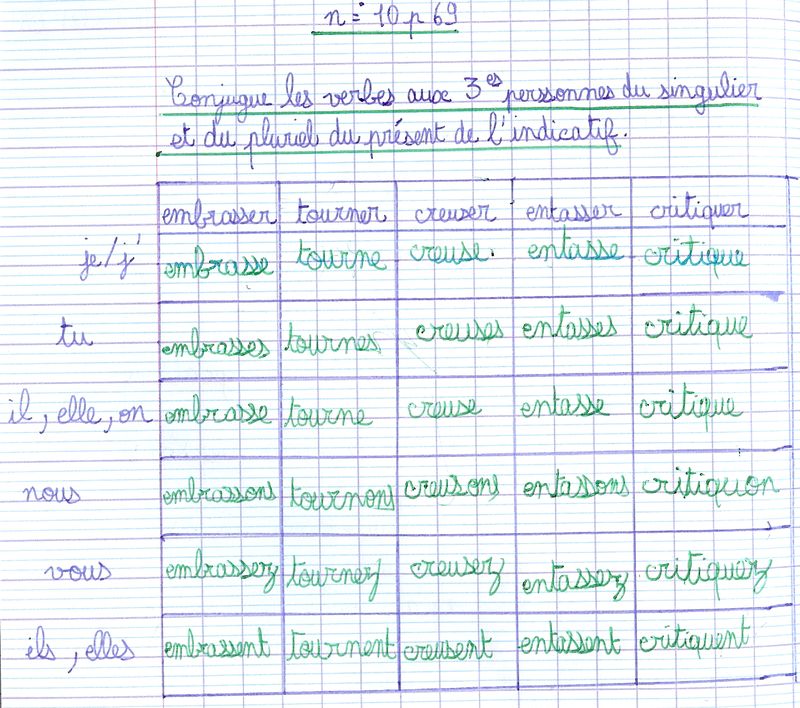 n=° 10 p 69
Conjugue les verbes aux 3es perssonnes du singulier
et du pluriel du présent de l'indicatif.
embrasser tourner creuser entasser critiquer
je/j' embrasse tourne creuse. entasse critique
tu embrasses tournes creuses entasses critique
il, elle, on embrasse tourne creuse entasse critique
nous embrassons tournons creusons entassons critiquon
vous embrassez tournez creusez entassez critiquez
ils, elles embrassent tournent creusent entassent critiquent